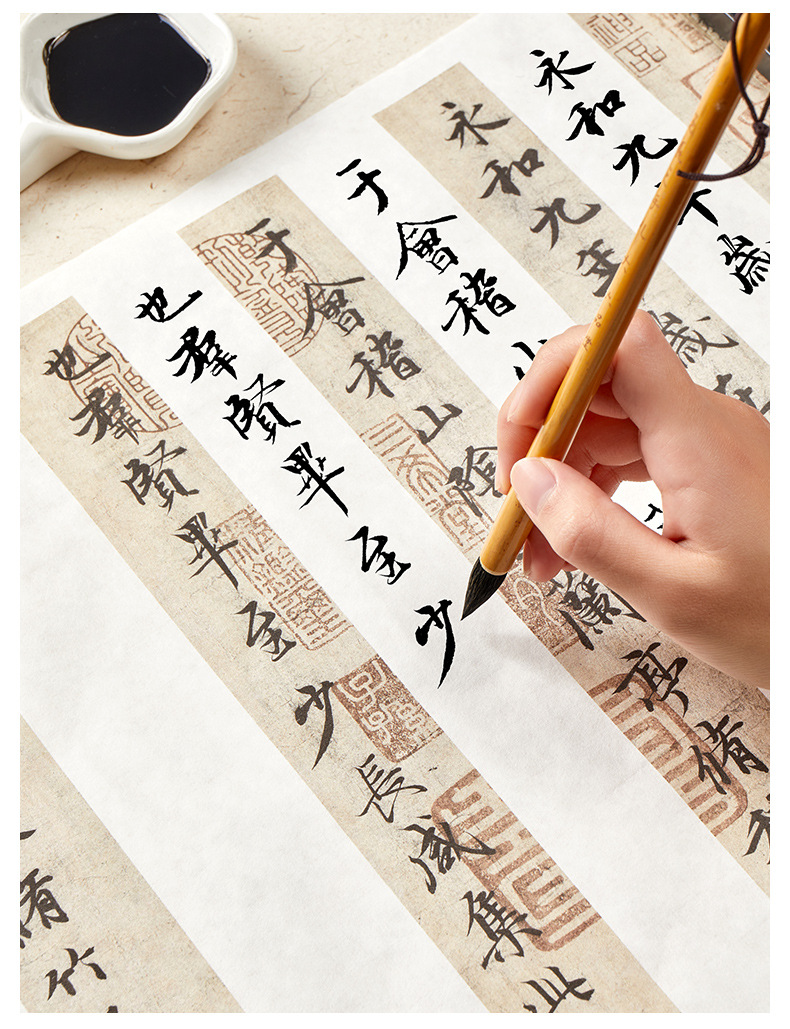 永和九年歲
永和九年歲在
于會稽山
于會稽山陰蘭亭脩
也羣賢畢至少
也羣賢畢至少長咸集此
脩竹